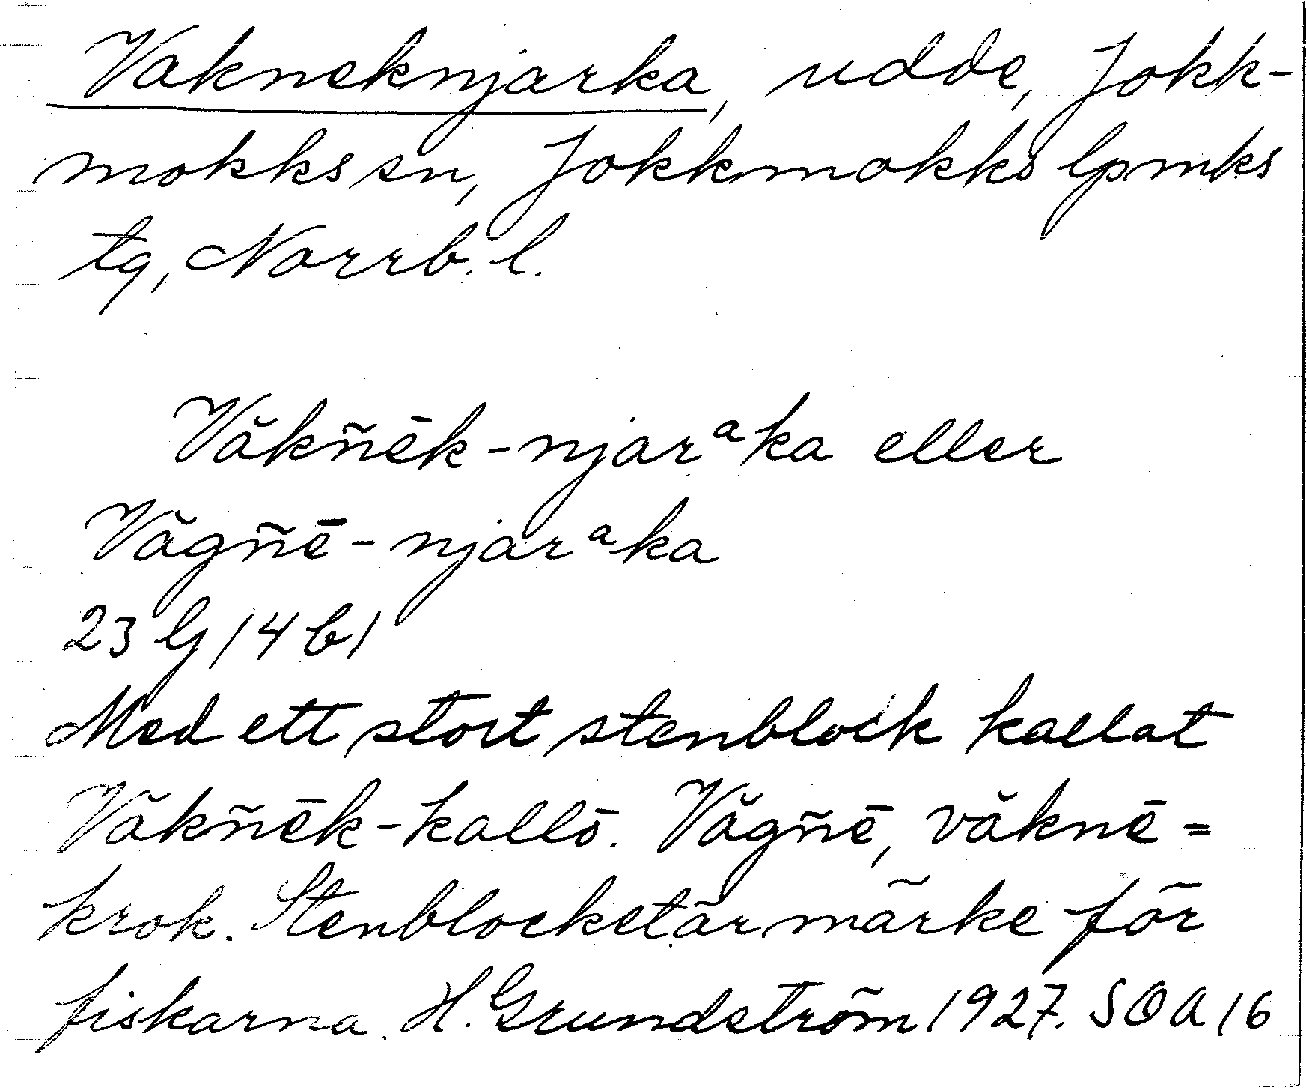 Vakneknjarka, udde, Jokk-
mokks sn, Jokkmokks lpmks
tg, Norrb. l.
Văkñēk-njarᵃka eller
Văgñē-njarᵃka
23 G/4 b/
Med ett stort stenblock kallat
Văkñēk-kallō. Văgñē, văknē =
krok. Stenblocket är märke för
fiskarna. H. Grundström 1927. SOA 16